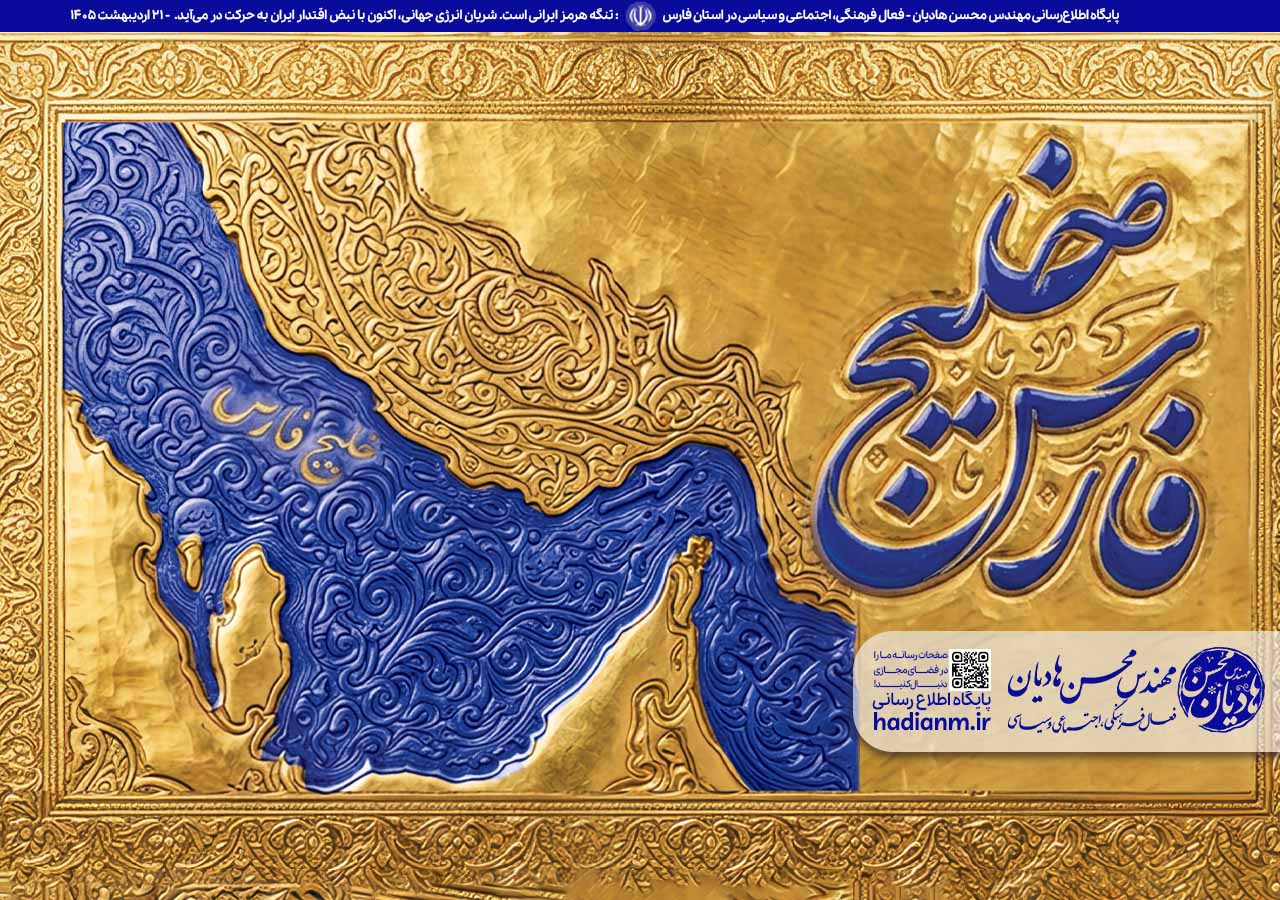 پایگاه اطلاع‌رسانی مهندس محسن هادیان - فعال فرهنگی، اجتماعی و سیاسی در استان فارس : تنگه هرمز ایرانی است. شریان انرژی جهانی، اکنون با نبض اقتدار ایران به حرکت در می‌آید. - ۲۱ اردیبهشت ۱۴۰۵
خلیج
فارس
خلیج فارس
صفحات رسانه ما را
در فضای مجازی
دنبال کنید!
پایگاه اطلاع رسانی
hadianm.ir
مهندس محسن هادیان
فعال فرهنگی، اجتماعی و سیاسی
مهندس محسن هادیان